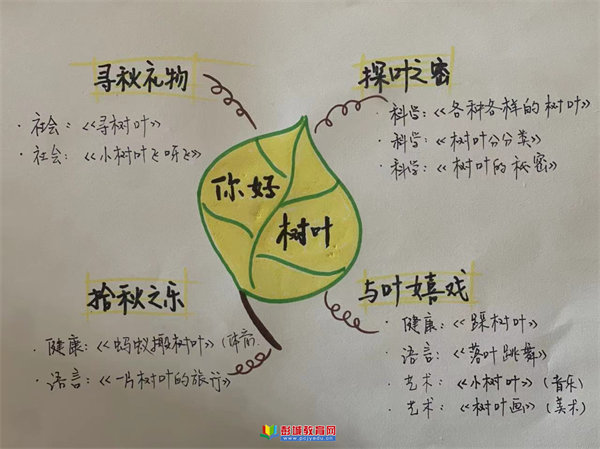 寻秋礼物
· 社会：《寻树叶》
· 社会：《小树叶飞呀飞》
探叶之密
· 科学：《各种各样的树叶》
· 科学：《树叶分分类》
· 科学：《树叶的秘密》
你好
树叶
拾秋之乐
· 健康：《蚂蚁搬树叶》（体育
· 语言：《一片树叶的旅行》
与叶嬉戏
· 健康：《踩树叶》
· 语言：《落叶跳舞》
· 艺术：《小树叶》（音乐）
· 艺术：《树叶画》（美术）
彭城教育网
www.pcjyedu.cn